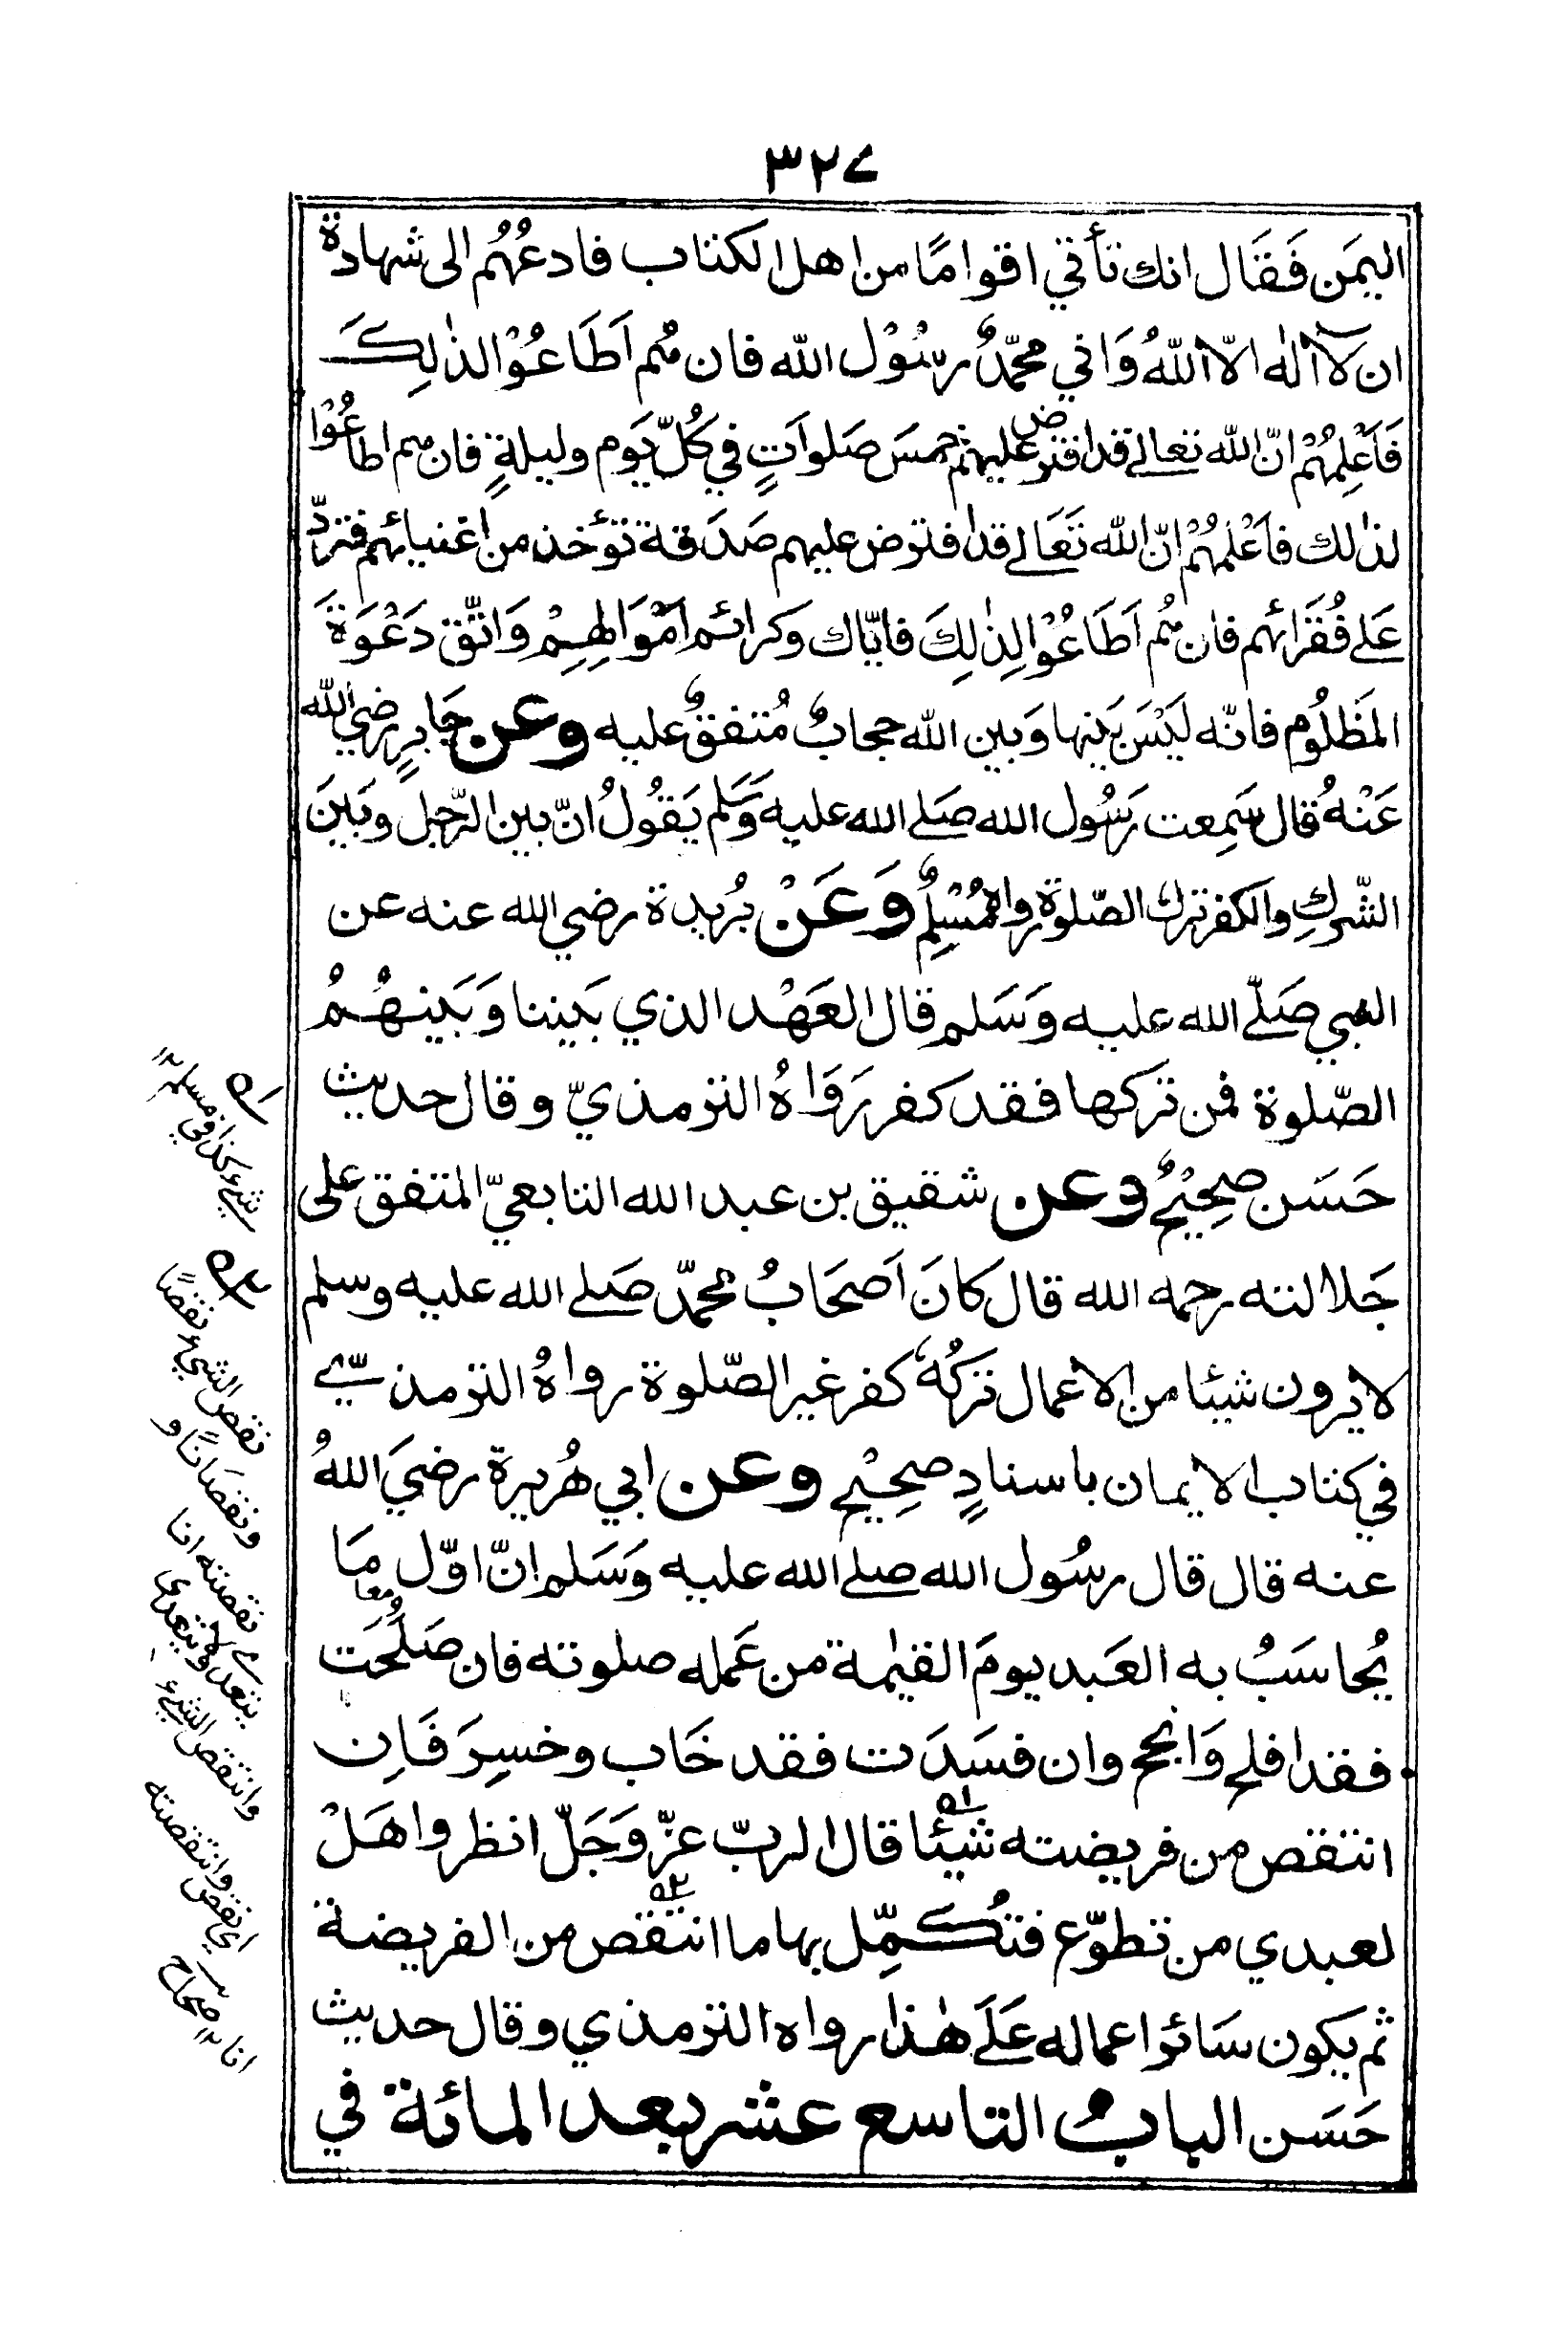 ٣٢٧
اليمَن فَقَال انك تأتي اقوامًا من اهل الكتاب فادعُهُم الى شهادة
ان لا اله الا اللهُ وَاني محمّدٌ رسُوْل الله فان هُم اَطَاعُوْا لذٰلِكَ
فَاَعْلِمْهُمْ انّ الله تعالے قد افترض عليهمْ خمسَ صَلواتٍ في كُلّ يَوم وليلةٍ فان هم اطاعُوْا
لذٰلك فاَعْلِمْهُمْ انّ الله تَعَالے قد افترض عليهم صَدَقة تؤخذ من اغنيائهم فتردّ
عَلے فُقَرائهم فان هُم اَطَاعُوْا لِذٰلِكَ فايّاك وكرائم اَمْوَالِهِمْ وَاتّق دَعْوَةَ
المَظلُوم فانّه لَيْسَ بَينها وَبين الله حجابٌ مُتفقٌ عليه وعن جَابرٍ رضي الله
عَنْهُ قال سَمِعت رَسُول الله صَلے الله عليه وَسَلم يَقُولُ انّ بين الرّجل وبَينَ
الشّركِ والكفر ترك الصّلوة رواه مُسْلِمٌ وَعَنْ بُريدة رضي الله عنه عن
النبي صَلّے الله عليه وَسَلم قال العَهْد الذي بَيننا وَبَينهُمُ
الصّلوة فمن تركها فقد كفر رَوَاهُ الترمذيّ وقال حديث
حَسَن صحِيْحٌ وعن شقيق بن عبد الله التابعيّ المتفق على
جَلالته رحمه الله قال كانَ اَصحَابُ محمّد صَلے الله عليه وسلم
لا يرون شيئا من الاعمال تركُهٗ كفر غير الصّلوة رواهُ الترمذيّ
في كتاب الايمان باسنادٍ صحِيْح وعن ابي هُريرة رضيَ اللهُ
عنه قال قال رسُول الله صلے الله عليه وَسَلم انّ اوّل مَا
يُحاسَبُ به العَبد يومَ القيٰمة من عَمله صلوته فان صَلُحَت
معا
فقد افلح وَانجح وان فسَدَت فقد خَاب وخسِرَ فَاِن
انتقص من فريضته شيْئا قال الربّ عزّ وَجَلّ انظروا هَلْ
لعبدي من تطوّع فتُكَمِّل بها ما انتقص من الفريضة
ثم يكون سَائر اعماله عَلَے هٰذا رواه الترمذي وقال حديث
حَسَن البابُ التاسع عشر بعد المائة في
شيء كذا في مسلم ١٢
نقص الشيء نقصًا
ونقصَانًا و
نقصته انا
يتعدى ولا يتعدى
وانتقص الشيء
وانتقصته
اي نقص
انا ١٢ صحاح